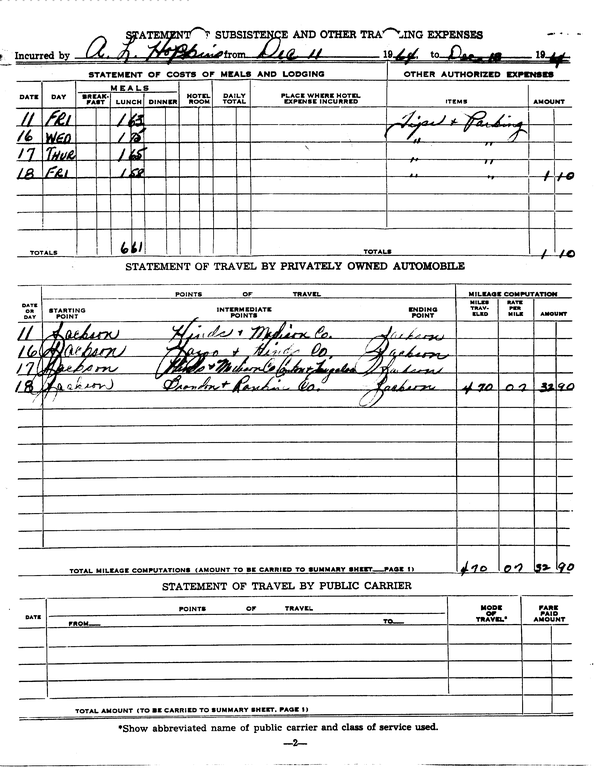 STATEMENT OF SUBSISTENCE AND OTHER TRAVELING EXPENSES
Incurred by A. L. Hopkins from Dec 11 1964. to Dec. 18 1964
STATEMENT OF COSTS OF MEALS AND LODGING OTHER AUTHORIZED EXPENSES
MEALS
DATE DAY BREAK-FAST LUNCH DINNER HOTEL ROOM DAILY TOTAL PLACE WHERE HOTEL EXPENSE INCURRED ITEMS AMOUNT
11 FRI 1 63 Tips & Parking
16 WED 1 75 " "
17 THUR 1 65 " "
18 FRI 1 58 " " 1 10
TOTALS 6 61 TOTALS 1 10
STATEMENT OF TRAVEL BY PRIVATELY OWNED AUTOMOBILE
POINTS OF TRAVEL MILEAGE COMPUTATION
DATE OR DAY STARTING POINT INTERMEDIATE POINTS ENDING POINT MILES TRAV-ELED RATE PER MILE AMOUNT
11 Jackson Hinds & Madison Co. Jackson
16 Jackson & Hinds Co. Jackson
17 Jackson Hinds & Madison Co Canton & Jackson
18 Jackson Brandon & Rankin Co. Jackson 470 07 32 90
TOTAL MILEAGE COMPUTATIONS (AMOUNT TO BE CARRIED TO SUMMARY SHEET PAGE 1) 470 07 32 90
STATEMENT OF TRAVEL BY PUBLIC CARRIER
DATE POINTS OF TRAVEL MODE OF TRAVEL* FARE PAID AMOUNT
FROM TO
TOTAL AMOUNT (TO BE CARRIED TO SUMMARY SHEET, PAGE 1)
*Show abbreviated name of public carrier and class of service used.
—2—